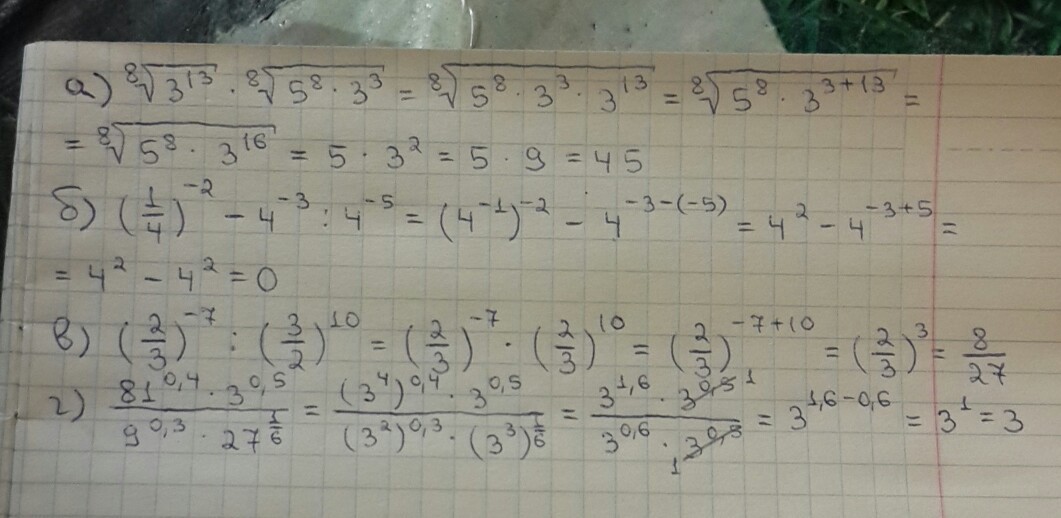 а) ⁸√(3¹³) · ⁸√(5⁸ · 3³) = ⁸√(5⁸ · 3³ · 3¹³) = ⁸√(5⁸ · 3³⁺¹³) =
= ⁸√(5⁸ · 3¹⁶) = 5 · 3² = 5 · 9 = 45
б) (1/4)^-2 − 4^-3 : 4^-5 = (4^-1)^-2 − 4^(-3-(-5)) = 4² − 4^(-3+5) =
= 4² − 4² = 0
в) (2/3)^-7 : (3/2)^10 = (2/3)^-7 · (2/3)^10 = (2/3)^(-7+10) = (2/3)³ = 8/27
г) (81^0,4 · 3^0,5)/(9^0,3 · 27^(1/6)) = ((3⁴)^0,4 · 3^0,5)/((3²)^0,3 · (3³)^(1/6)) = (3^1,6 · 3^0,5 1)/(3^0,6 · 1 3^0,5) = 3^(1,6-0,6) = 3¹ = 3